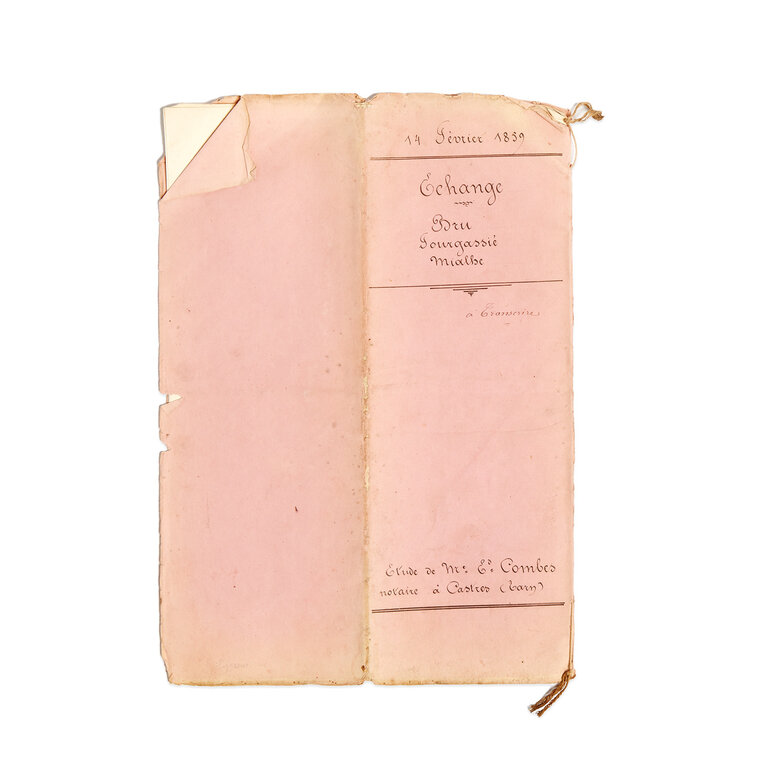 14 Février 1889
Echange
Bru
Fourgassié
Mialhe
à Transcrire
Etude de Me. Ed. Combes
notaire à Castres (Tarn)